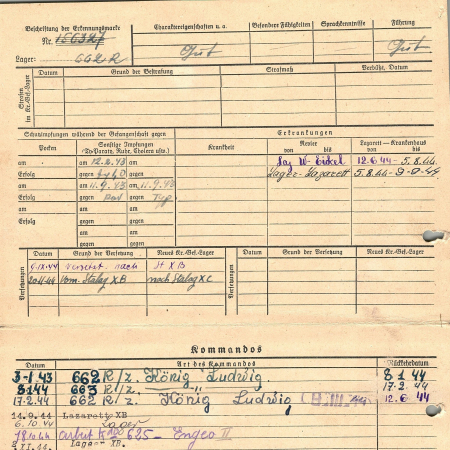 Beschriftung der Erkennungsmarke
Nr. 156327
Lager: 662 R
Charaktereigenschaften u.a.
Gut
Besondere Fähigkeiten
Sprachkenntnisse
Führung
Gut
Strafen im Kr.-Gef.-Lager
Datum Grund der Bestrafung Strafmaß Verbüßt, Datum
Schutzimpfungen während der Gefangenschaft gegen
Erkrankungen
Pocken
Sonstige Impfungen
(Ty-Paraty, Ruhr, Cholera usw.)
Krankheit
Revier
von bis
Lazarett — Krankenhaus
von bis
am am 12.2.43 12.6.44 - 5.8.44
Erfolg gegen Lager-Lazarett 5.8.44
am am 11.9.43 11.9.43
Erfolg gegen Typ
am am
Erfolg gegen
am
gegen
Versetzungen
Datum Grund der Versetzung Neues Kr.-Gef.-Lager
Datum Grund der Versetzung Neues Kr.-Gef.-Lager
Versetzt nach St X B
vom Stalag XB nach Stalag XC
Kommandos
Datum Art des Kommandos Rückkehrdatum
3-1.43 662 R/z. König Ludwig. 8 1 44
8144 663 R/z. 17.2 44
17.2 44 662 R/z. König Ludwig 12.6 44
14.9.44 Lazarett XB
6.10.44 Lager
18.10.44 625 - Engeo II
Lager-XB.